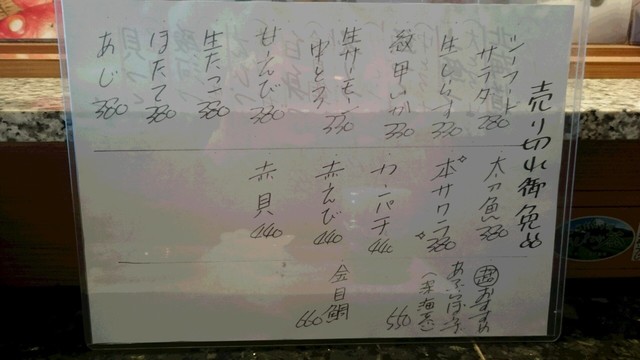 売り切れ御免
シーフード
サラダ 280
生しらす 330
紋甲いか 330
生サーモン
中とろ 330
甘えび 330
生たこ 380
ほたて 380
あじ 380
太刀魚 380
本サワラ 380
カンパチ 440
赤えび 440
赤貝 440
おすすめ
550
金目鯛
660